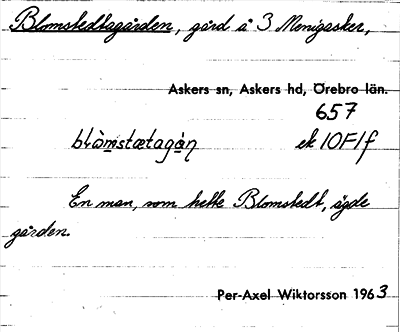 Blomstedtagården, gård å 3 Menigasker,
Askers sn, Askers hd, Örebro län.
657
blòmstætagàṇ ek 10F1f
En man, som hette Blomstedt, ägde
gården.
Per-Axel Wiktorsson 1963